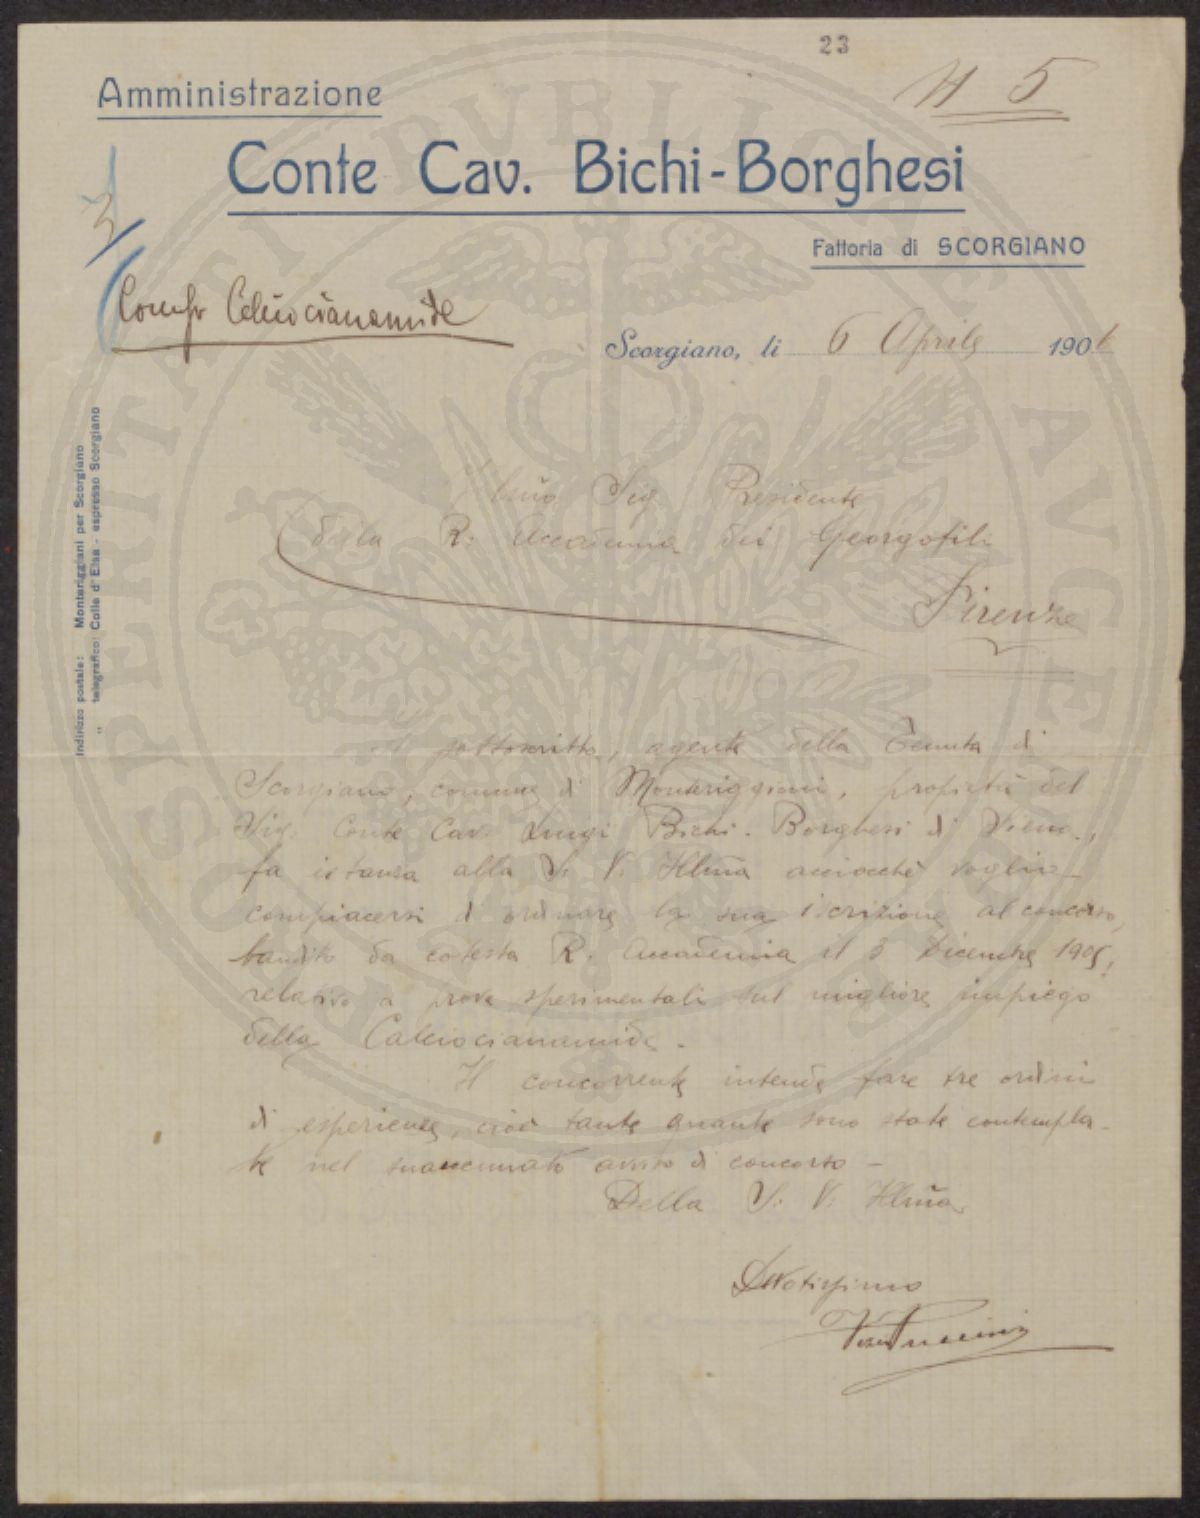 23
N 5
Amministrazione
Conte Cav. Bichi-Borghesi
Fattoria di SCORGIANO
3/
Calciocianamide
Scorgiano, li 6 Aprile 1906
Indirizzo postale: Monteriggioni per Scorgiano
" telegrafico: Colle d'Elsa - espresso Scorgiano
Illmo Sig. Presidente
della R. Accademia dei Georgofili
Firenze
Il sottoscritto, agente della Tenuta di
Scorgiano, comune di Monteriggioni, propietà del
Sig. Conte Cav. Luigi Bichi-Borghesi di Siena,
fa istanza alla S. V. Illma acciocchè voglia
compiacersi di ordinare la sua iscrizione al concorso,
bandito da cotesta R. Accademia il 3 Dicembre 1905,
relativo a prove sperimentali sul migliore impiego
della Calciocianamide.
Il concorrente intende fare tre ordini
di esperienze, cioè tante quante sono state contempla-
te nel suaccennato avviso di concorso -
Della S. V. Illma
Devotissimo